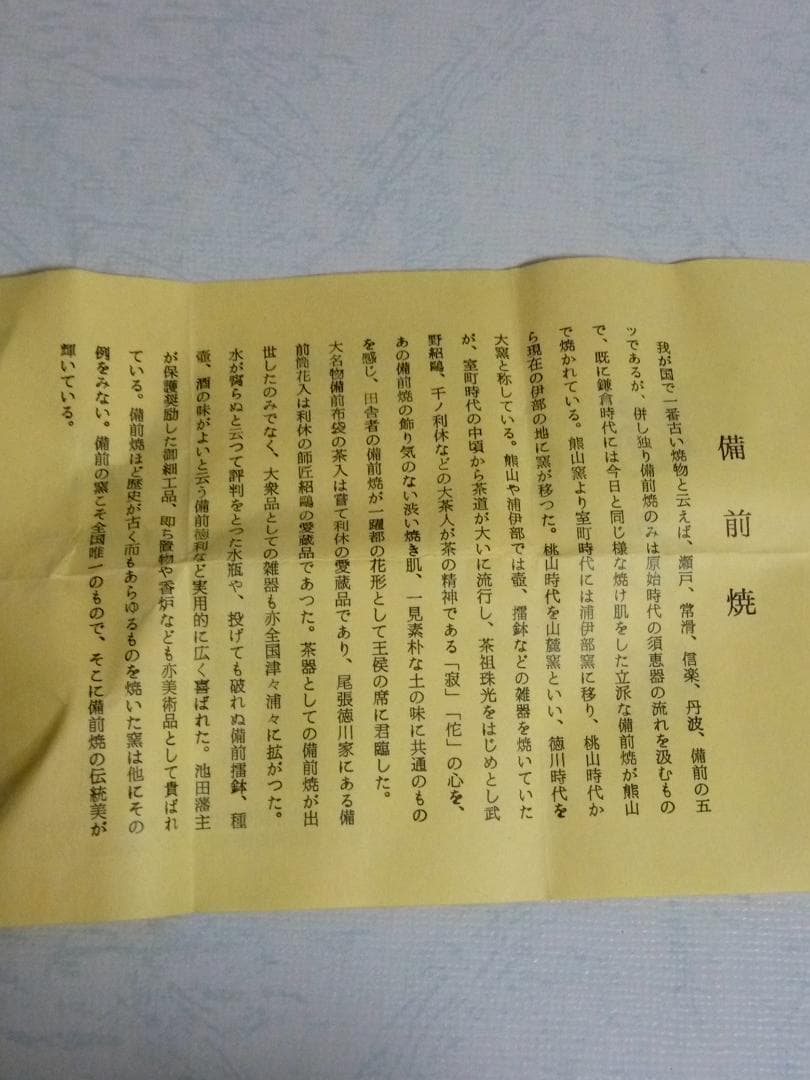 備前焼
我が国で一番古い焼物と云えば、瀬戸、常滑、信楽、丹波、備前の五
ッであるが、併し独り備前焼のみは原始時代の須恵器の流れを汲むもの
で、既に鎌倉時代には今日と同じ様な焼け肌をした立派な備前焼が熊山
で焼かれている。熊山窯より室町時代には浦伊部窯に移り、桃山時代か
ら現在の伊部の地に窯が移つた。桃山時代を山麓窯といい、徳川時代を
大窯と称している。熊山や浦伊部では壺、擂鉢などの雑器を焼いていた
が、室町時代の中頃から茶道が大いに流行し、茶祖珠光をはじめとし武
野紹鷗、千ノ利休などの大茶人が茶の精神である「寂」「佗」の心を、
あの備前焼の飾り気のない渋い焼き肌、一見素朴な土の味に共通のもの
を感じ、田舎者の備前焼が一躍都の花形として王侯の席に君臨した。
大名物備前布袋の茶入は嘗て利休の愛蔵品であり、尾張徳川家にある備
前筒花入は利休の師匠紹鷗の愛蔵品であつた。茶器としての備前焼が出
世したのみでなく、大衆品としての雑器も亦全国津々浦々に拡がつた。
水が腐らぬと云つて評判をとつた水瓶や、投げても破れぬ備前擂鉢、種
壺、酒の味がよいと云う備前徳利など実用的に広く喜ばれた。池田藩主
が保護奨励した御細工品、即ち置物や香炉なども亦美術品として貴ばれ
ている。備前焼ほど歴史が古く而もあらゆるものを焼いた窯は他にその
例をみない。備前の窯こそ全国唯一のもので、そこに備前焼の伝統美が
輝いている。